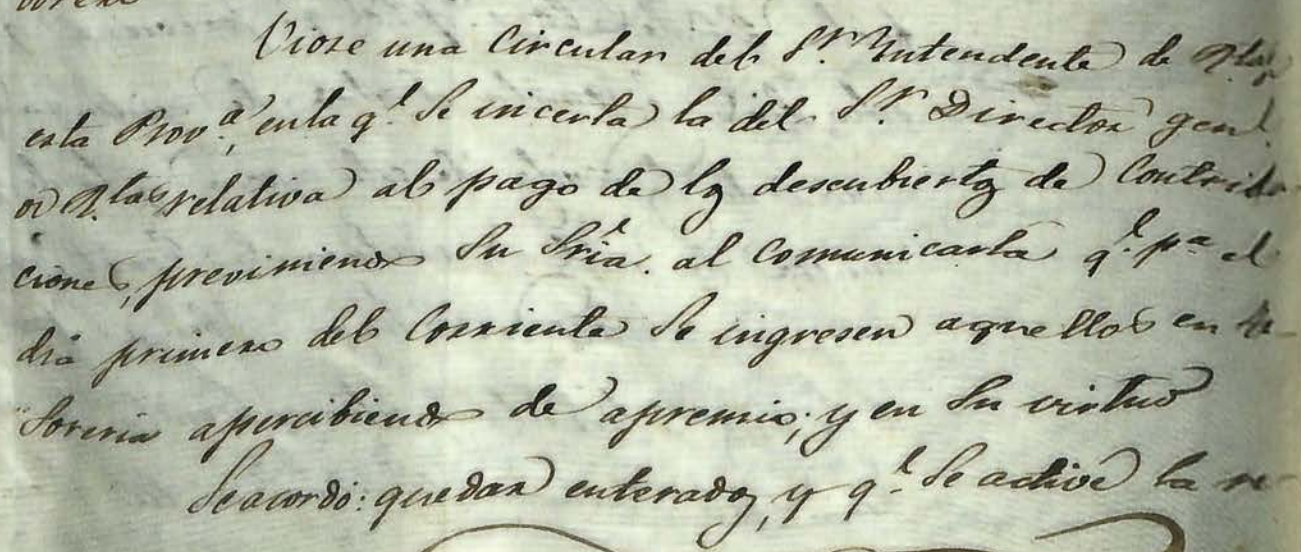 Viose una Circular del Sr. Yntendente de Rtas
esta Prova, en la ql. Se incerta la del Sr. Director genl.
de Rtas relativa al pago de los descubiertos de Contribu-
ciones, previniendo Su Sría. al Comunicarla ql. pa el
dia primero del Corriente Se ingresen aquellos en te-
Soreria apercibiendo de apremio; y en Su virtud
Se acordó: quedar enterados, y ql. Se active la re-